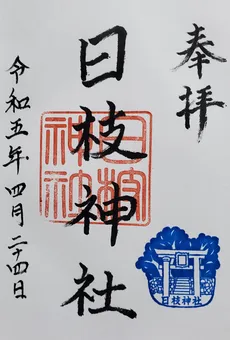 奉拝
日枝神社
日枝神社
日枝神社
令和五年四月二十四日